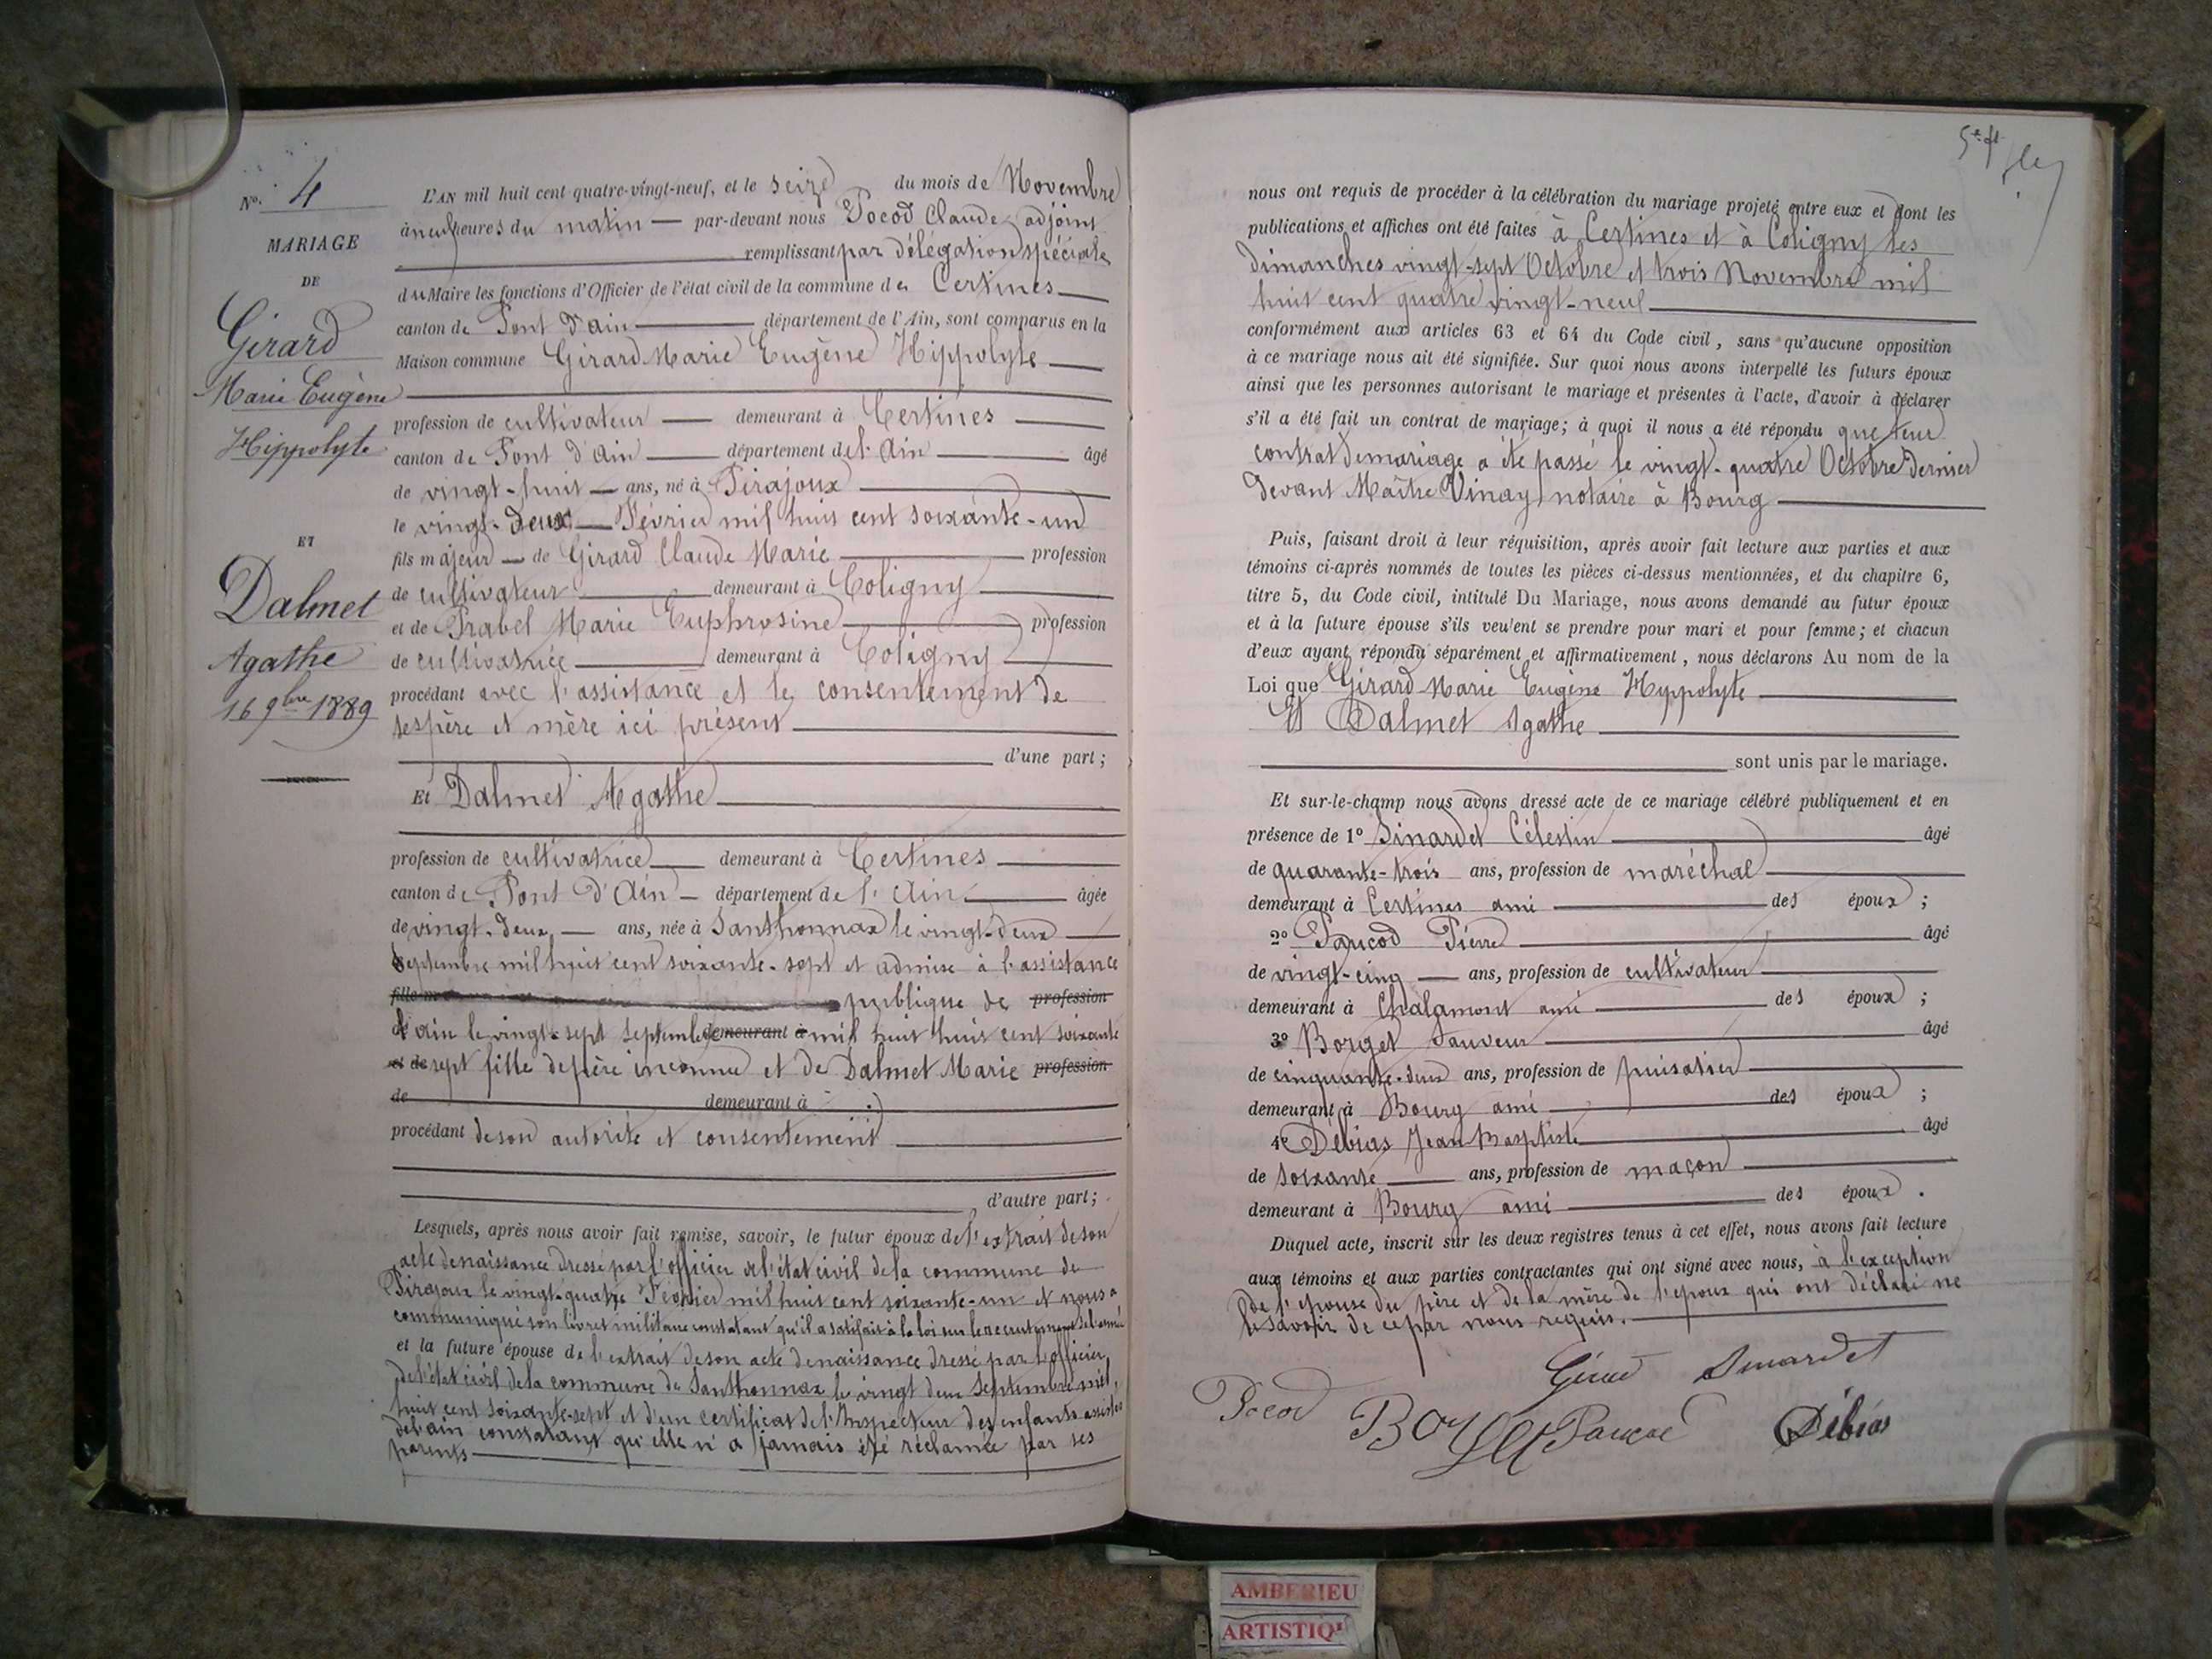 N° 4
MARIAGE
DE
Girard
Marie Eugène
Hippolyte
ET
Dalmet
Agathe
16 9bre 1889
L'AN mil huit cent quatre-vingt-neuf, et le seize du mois de Novembre
à neuf heures du matin — par-devant nous Pocod Claude adjoint
remplissant par délégation spéciale
du Maire les fonctions d'Officier de l'état civil de la commune de Certines
canton de Pont d'ain département de l'Ain, sont comparus en la
Maison commune Girard Marie Eugène Hippolyte
profession de cultivateur — demeurant à Certines
canton de Pont d'Ain département de l'Ain âgé
de vingt-huit — ans, né à Pirajoux
le vingt-deux — Février mil huit cent soixante-un
fils majeur — de Girard Claude Marie profession
de cultivateur demeurant à Coligny
et de Prabel Marie Euphrosine profession
de cultivatrice demeurant à Coligny
procédant avec l'assistance et le consentement de
ses père et mère ici présent
d'une part;
Et Dalmet Agathe
profession de cultivatrice demeurant à Certines
canton de Pont d'Ain — département de l'Ain âgée
de vingt-deux — ans, née à Santhonnax le vingt-deux
Septembre mil huit cent soixante-sept et admise à l'assistance
fille m publique de profession
l'ain le vingt-sept Septembre demeurant à mil huit huit cent soixante
et de sept fille de père inconnu et de Dalmet Marie profession
de demeurant à
procédant de son autorité et consentement
d'autre part;
Lesquels, après nous avoir fait remise, savoir, le futur époux de l'extrait de son
acte de naissance dressé par l'officier de l'état civil de la commune de
Pirajoux le vingt-quatre Février mil huit cent soixante-un et nous a
communiqué son livret militaire constatant qu'il a satisfait à la loi sur le recrutement de l'armée
et la future épouse de l'extrait de son acte de naissance dressé par l'officier
de l'état civil de la commune de Santhonnax le vingt deux Septembre mil
huit cent soixante-sept et d'un certificat de l'Inspecteur des enfants assistés
de l'ain constatant qu'elle n'a jamais été réclamée par ses
parents
nous ont requis de procéder à la célébration du mariage projeté entre eux et dont les
publications et affiches ont été faites à Certines et à Coligny les
dimanches vingt-sept Octobre et trois Novembre mil
huit cent quatre vingt-neuf
conformément aux articles 63 et 64 du Code civil, sans qu'aucune opposition
à ce mariage nous ait été signifiée. Sur quoi nous avons interpellé les futurs époux
ainsi que les personnes autorisant le mariage et présentes à l'acte, d'avoir à déclarer
s'il a été fait un contrat de mariage; à quoi il nous a été répondu que leur
contrat de mariage a été passé le vingt-quatre Octobre dernier
devant Maître Vinay notaire à Bourg
Puis, faisant droit à leur réquisition, après avoir fait lecture aux parties et aux
témoins ci-après nommés de toutes les pièces ci-dessus mentionnées, et du chapitre 6,
titre 5, du Code civil, intitulé Du Mariage, nous avons demandé au futur époux
et à la future épouse s'ils veulent se prendre pour mari et pour femme; et chacun
d'eux ayant répondu séparément et affirmativement, nous déclarons Au nom de la
Loi que Girard Marie Eugène Hyppolyte
Et Dalmet Agathe
sont unis par le mariage.
Et sur-le-champ nous avons dressé acte de ce mariage célébré publiquement et en
présence de 1° Sinardet Célestin âgé
de quarante-trois ans, profession de maréchal
demeurant à Certines ami des époux ;
2° Paucod Pierre âgé
de vingt-cinq — ans, profession de cultivateur
demeurant à Chalamont ami des époux ;
3° Borget Sauveur âgé
de cinquante-deux ans, profession de puisatier
demeurant à Bourg ami des époux ;
4° Débias Jean-Baptiste âgé
de soixante ans, profession de maçon
demeurant à Bourg ami des époux .
Duquel acte, inscrit sur les deux registres tenus à cet effet, nous avons fait lecture
aux témoins et aux parties contractantes qui ont signé avec nous, à l'exception
de l'épouse du père et de la mère de l'époux qui ont déclaré ne
le savoir de ce par nous requis.
Girard Sinardet
Pocod Borget Paucod Débias
AMBERIEU
ARTISTIQ